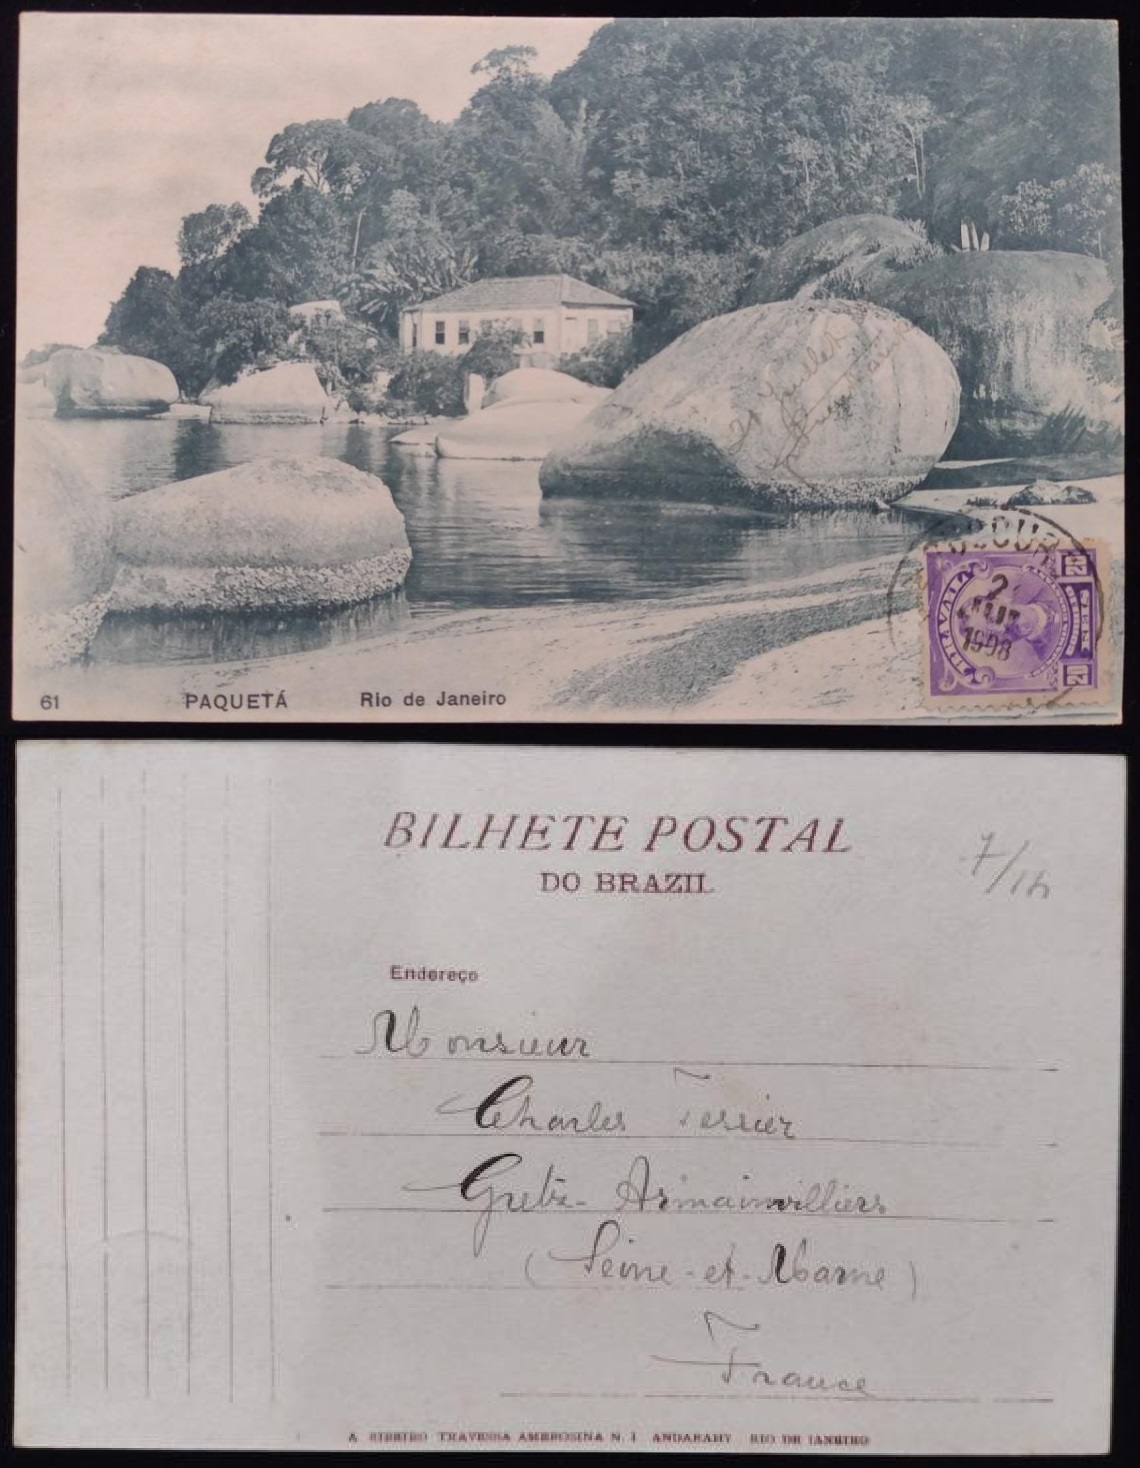 21 Juillet
61 PAQUETÁ Rio de Janeiro
2
1908
BILHETE POSTAL
DO BRAZIL
7/1h
Endereço
Monsieur
Charles Terrier
Gretz-Armainvilliers
(Seine-et-Marne)
France
A RIBEIRO TRAVESSA AMBROSINA N. 1 ANDARAHY RIO DE JANEIRO